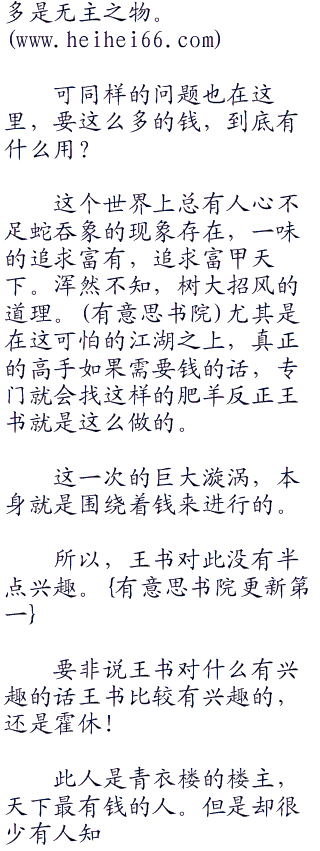 多是无主之物。
(www.heihei66.com)
可同样的问题也在这
里，要这么多的钱，到底有
什么用？
这个世界上总有人心不
足蛇吞象的现象存在，一味
的追求富有，追求富甲天
下。浑然不知，树大招风的
道理。(有意思书院)尤其是
在这可怕的江湖之上，真正
的高手如果需要钱的话，专
门就会找这样的肥羊反正王
书就是这么做的。
这一次的巨大漩涡，本
身就是围绕着钱来进行的。
所以，王书对此没有半
点兴趣。{有意思书院更新第
一}
要非说王书对什么有兴
趣的话王书比较有兴趣的，
还是霍休！
此人是青衣楼的楼主，
天下最有钱的人。但是却很
少有人知